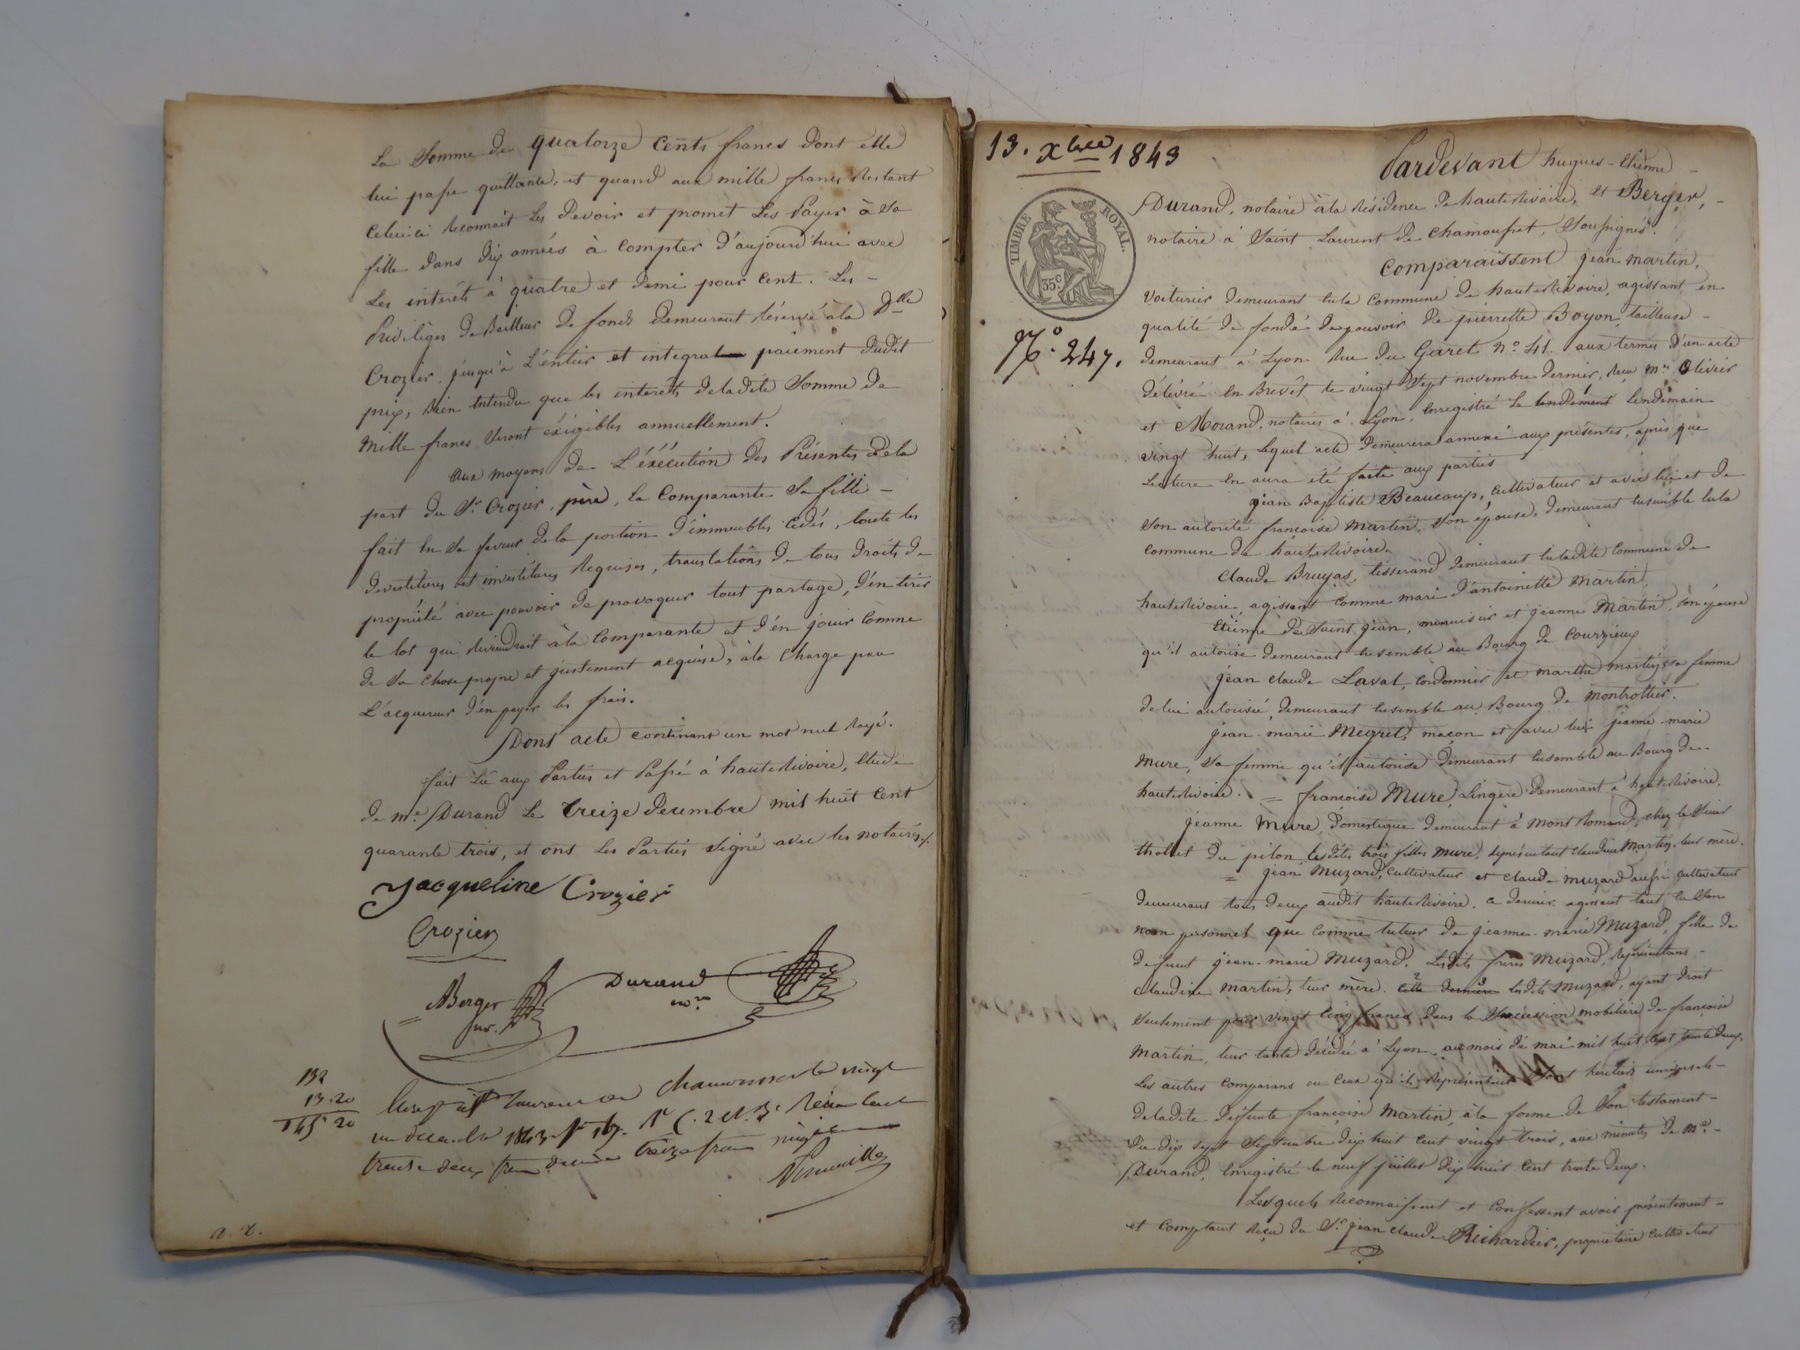 La Somme de quatorze Cents francs dont elle
lui passe quittance, et quand aux mille francs restant
celui-ci reconnait les devoir et promet les payer à sa
fille dans dix années à compter d'aujourd'hui avec
les intérêts à quatre et demi pour cent. Les -
Privilèges de Bailleur de fonds demeurant réservé à la Dlle
Crozier jusqu'à l'entier et integral paiement dudit
prix, bien entendu que les intérêts de ladite Somme de
mille francs seront éxigibles annuellement.
Aux moyens de L'éxécution des Présentes de la
part du Sr. Crozier, père, la Comparante Sa fille -
fait en sa faveur de la portion d'immeubles cédés, toute les
devestitures et investitures requises, translations de tous droits de
propriété avec pouvoir de provoquer tout partage, d'en tirer
le lot qui reviendrait à la Comparante et d'en jouir comme
de sa chose propre et justement acquise, à la charge par
L'acquereur d'en payer les frais.
Dont acte contenant un mot nul rayé.
fait Lu aux Parties et Passé à hauterivoire, Etude
de me. Durand Le treize décembre mil huit Cent
quarante trois, et ont les Parties signé avec les notaires./.
Jacqueline Crozier
Crozier
Berger Durand
nre. nre.
132
13.20
145 20
vingt
1843
treize francs vingt
n. d.
13. Xbre 1843
Pardevant hugues-Etienne
Durand, notaire à la résidence de hauterivoire, et Berger, -
notaire à Saint Laurent de Chamousset, Soussignés.
TIMBRE ROYAL.
35 c
Comparaissent jean martin,
Voiturier demeurant en la Commune de hauterivoire, agissant en
qualité de fondé de pouvoir de pierrette Boyon, tailleuse -
No. 247.
demeurant à Lyon Rue du Garet No. 41. aux termes d'un acte
délivré en Brevêt le vingt Sept novembre dernier, reçu me. Olivier
et Morand, notaires à Lyon, enregistré le lendement lendemain
vingt huit, lequel acte demeurera annexé aux présentes, après que
Lecture en aura été faite aux parties
jean Baptiste Beaucoup, Cultivateur et avec lui et de
son autorité françoise Martin, son épouse, demeurant ensemble en la
Commune de hauterivoire.
Claude Bruyas, tisserand demeurant en ladite Commune de
hauterivoire, agissant comme mari d'antoinette Martin.
Etienne de Saint jean, menuisier et jeanne Martin, son épouse
qu'il autorise demeurant ensemble au Bourg de Courzieux
jean claude Laval, Cordonnier et marthe martin sa femme
de lui autorisée, demeurant ensemble au Bourg de Montrottier.
jean-marie Megret, maçon et avec lui jeanne-marie
Mure, sa femme qu'il autorise demeurant ensemble au Bourg de-
hauterivoire. = françoise Mure, Lingère demeurant à hauterivoire.
jeanne Mure, domestique demeurant à Mont Romand, chez le Sieur
tholet du pilon, lesdites trois filles Mure, représentant claudine Martin, leur mère.
= jean Muzard, Cultivateur et claude muzard aussi cultivateur
demeurant tous deux audit hauterivoire, ce dernier agissant tant en son
nom personnel que comme tuteur de jeanne-marie Muzard, fille de
défunt jean-marie Muzard. Lesdits frères Muzard, représentans -
Claudine Martin, leur mère. Cette dernière lesdits Muzard, ayant droit
Seulement pour vingt cinq francs dans la Succession mobilière de françoise
Martin, leur tante décédée à Lyon au mois de mai mil huit cent trente deux,
Les autres Comparans ou ceux qu'ils représentent sont heritiers universels-
de ladite défunte françoise Martin, à la forme de Son testament-
du dix Sept Septembre dix huit Cent vingt trois, aux minutes de me. -
Durand, enregistré le neuf juillet dix huit Cent trente deux.
Lesquels reconnaissent et confessent avoir présentement -
et Comptant reçu du Sr. jean claude Richardier, propriétaire cultivateur